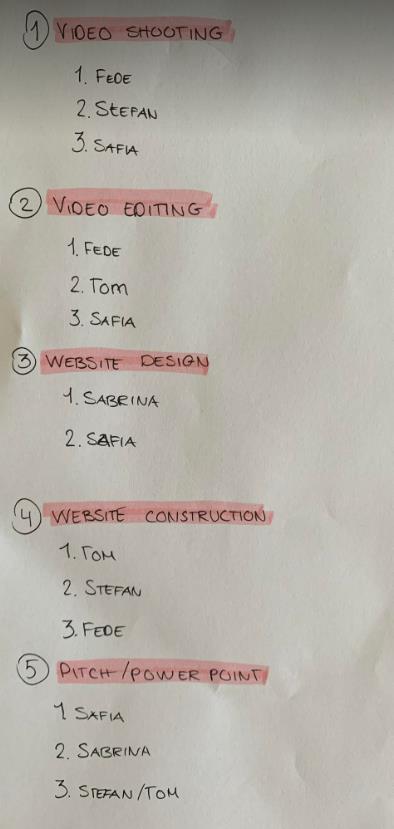 1 VIDEO SHOOTING
1. FEDE
2. STEFAN
3. SAFIA
2 VIDEO EDITING
1. FEDE
2. Tom
3. SAFIA
3 WEBSITE DESIGN
1. SABRINA
2. SAFIA
4 WEBSITE CONSTRUCTION
1. TOM
2. STEFAN
3. FEDE
5 PITCH/POWER POINT
1 SAFIA
2. SABRINA
3. STEFAN/TOM